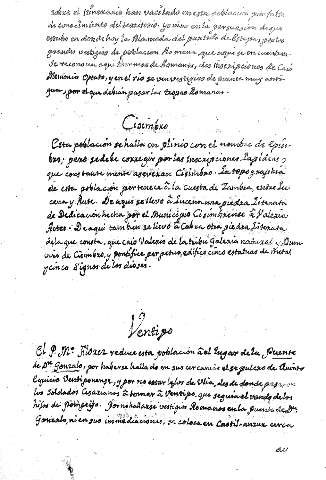 sobre el Itinerario han vacilado en esta población por falta
de conocimiento del territorio, yo vivo en la persuasión de que
estubo en donde hoy la Alameda del partido de Estepa, pues los
grandes vestigios de poblacion Romana, que aqui se encuentran
Se reconocen aqui Thermas de Romanos, dos inscripciones de Caio
Memmio Optato, y en el rio se ven vestigios de puente muy anti-
guo, por el que debian pasar las tropas Romanas.
Cisimbro
Esta población se halla en Plinio con el nombre de Episim-
bro; pero se debe corregir por las Inscripciones Lapideas, que
constantemente expresan Cisimbro. La topografia
de esta población pertenece a la Cuesta de Zambra, entre Lu-
cena y Rute. De aqui se llevó a Lucena una piedra Literata
de Dedicación hecha por el Municipio Cisimbrense a Valerio
De aqui tambien se llevó a Cabra otra piedra Literata
de la que consta, que Caio Valerio de la tribu Galeria natural y Dum-
viro de Cisimbro, y pontifice perpetuo, edificó cinco estatuas de metal
y cinco Signos de los dioses.
Ventipo
El P. Mro. Florez reduce esta población a el Lugar de la Puente
de Dn. Gonzalo, por haverse hallado en sus cercanias el sepulcro de Quinto
Equicio Ventiponense, y por no estar lejos de Ulia, desde donde pasaron
los Soldados Cesarianos a tomar a Ventipo, que seguia el vando de los
hijos de Pompeyo. Por no hallarse vestigios Romanos en la puente de Dn.
Gonzalo, ni en sus inmediaciones, se coloca en Castil-anzur cerca